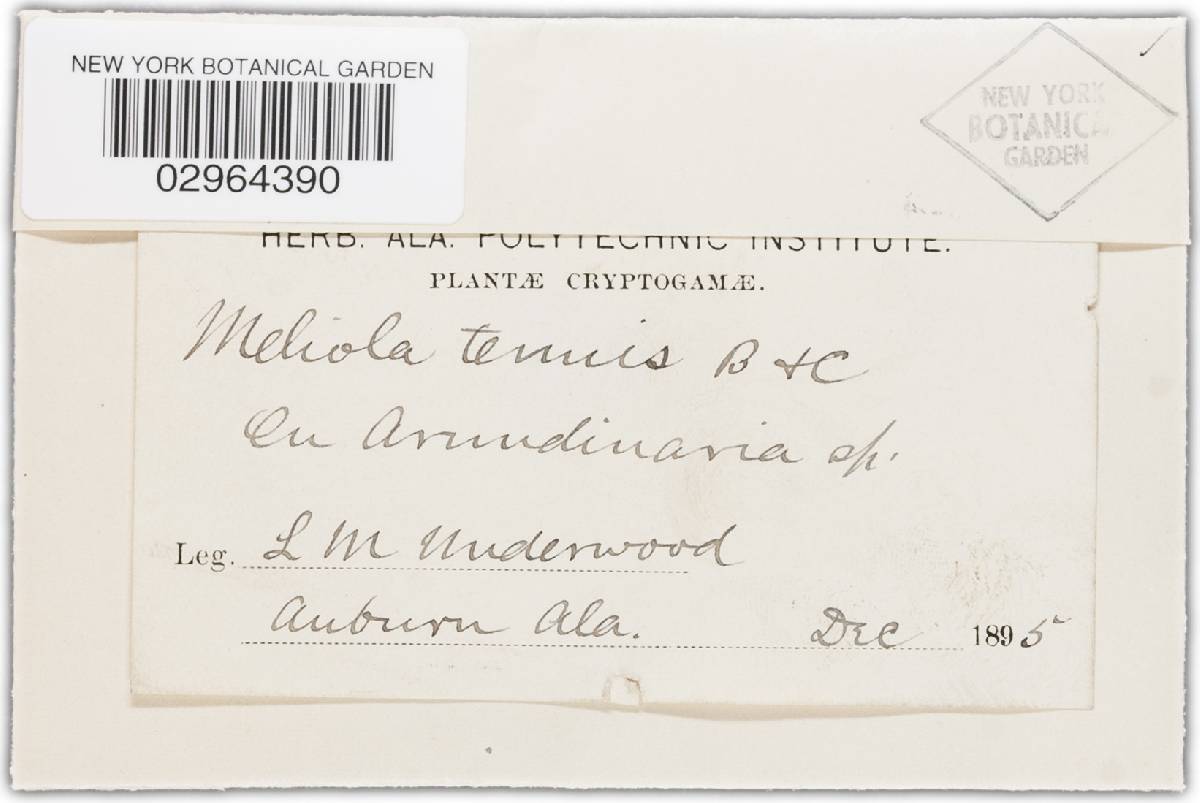 NEW YORK BOTANICAL GARDEN
02964390
NEW YORK
BOTANICAL
GARDEN
HERB. ALA. POLYTECHNIC INSTITUTE.
PLANTÆ CRYPTOGAMÆ.
Meliola tenuis B & C
On Arundinaria sp.
Leg. L M Underwood
Auburn Ala. Dec 1895